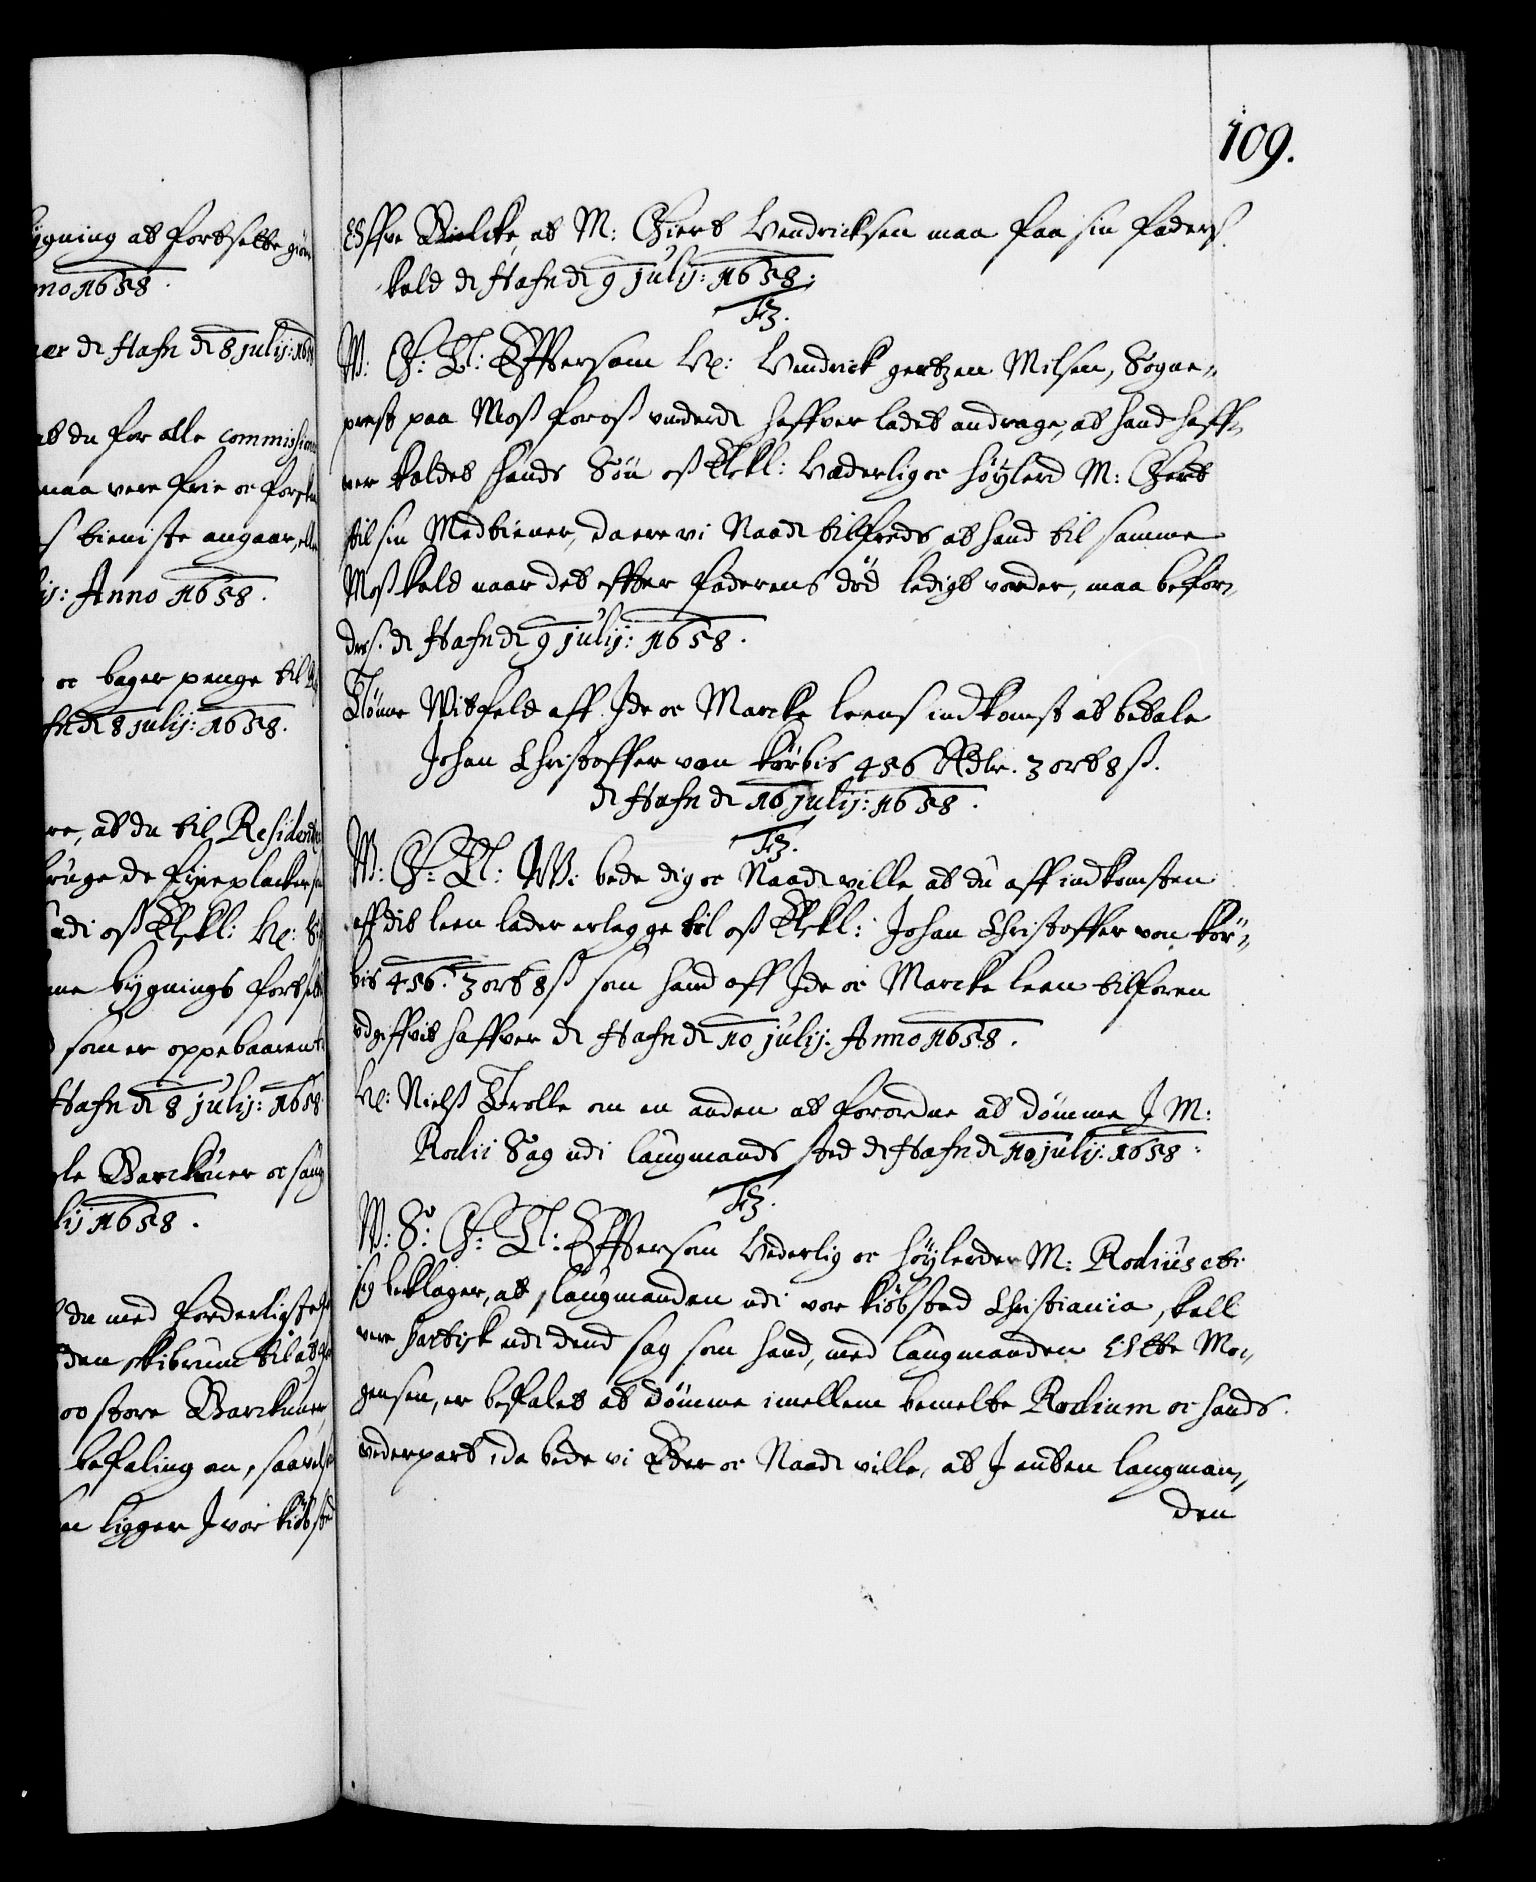 109.
ygning at fortsette giør
nno 1658.
ner d. Hafn d. 8 julij: 1658
at du for alle commissi
maa vere frie oc forsk
s tieniste angaar, ell
ij: Anno 1658.
oc bager penge til
fn d. 8 julij: 1658.
re, at du til Residen
bruge de fyrreplacker
udi oß Elskl: Hr:
ne bygnings fortse
som er oppebaaren
Hafn d. 8 julij: 1658
le Barckuer oc
lij 1658.
du med forderligste
den skibrum til at
oo store Barckuer
befaling an, saavel
en ligger J vor kiøbsted
Offve Bielcke, at M: Giert Hendricksen maa faa sin faders
kald d. Hafn d. 9 julij: 1658.
W: G: T: Effter som Hr: Hendrick gertzen Milsen, Sogne-
prest paa Moß for oß underd. haffver ladet andrage, at hand haff-
ver kaldet hands Søn oß Elskl: Hæderlig oc Høylerd M: Gert
til sin Medtiener, da ere vi Naad. tilfreds at hand til samme
Moß kald naar det effter faderens død ledigt vorder, maa befor-
dres. d. Hafn d. 9 julij: 1658.
Tønne Witfeld aff Ide oc Marcke leens indkomst at betale
Johan Christoffer von Körbis 456 Rdlr. 3 ort 8 ß.
d. Hafn d. 10 julij: 1658.
W: G: T: Wi bede dig oc Naad. ville at du aff indkomsten
aff dit leen lader erlegge til oß Elskl: Johan Christoffer von Kör-
bis 456. 3 ort 8 ß som hand aff Ide oc Marcke leen tilforen
udgiffvit haffver d. Hafn d. 10 julij: Anno 1658.
Hr: Nielß Trolle om en anden at forordne at dømme J M:
Rodii Sag udi laugmands sted d. Hafn d. 10 julij: 1658.
W: S: G: T: Effter som Hederlig oc Høylerde M: Rodius etc
sig beklager, at laugmanden udi vor kiøbsted Christiania, skall
vere partisk udi dend sag som hand, med laugmanden Mo-
gensen, er befalet at dømme imellem bemelte Rodium oc hands
vederpart, da bede vi Eder oc Naad. ville, at J anden laugman-
den